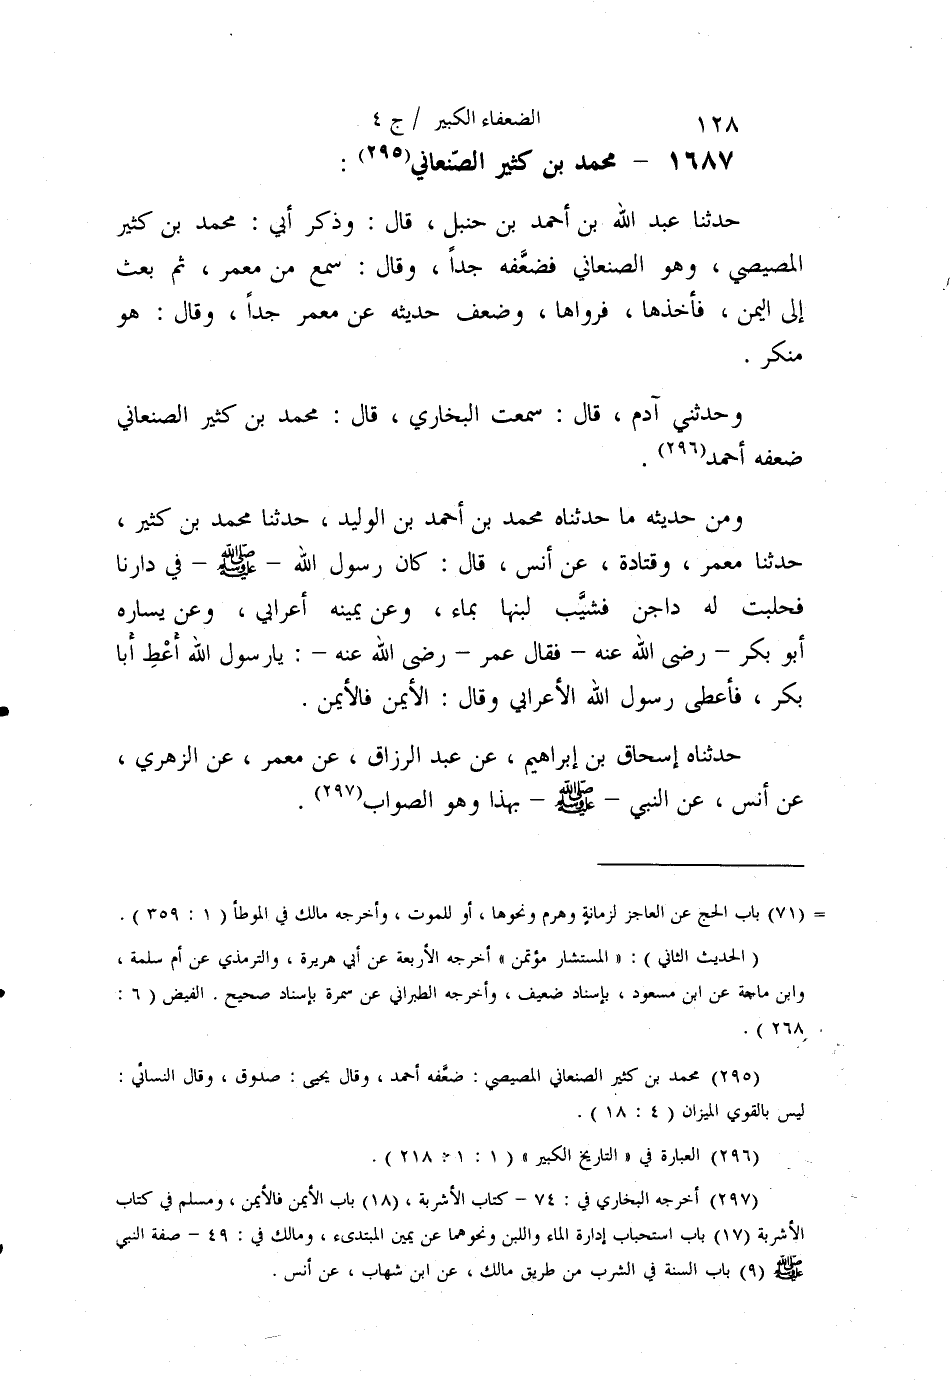 ١٢٨ الضعفاء الكبير / ج ٤
١٦٨٧ - محمد بن كثير الصّنعاني(٢٩٥) :
حدثنا عبد الله بن أحمد بن حنبل ، قال : وذكر أبي : محمد بن كثير
المصيصي ، وهو الصنعاني فضعَّفه جداً ، وقال : سمع من معمر ، ثم بعث
إلى اليمن ، فأخذها ، فرواها ، وضعف حديثه عن معمر جداً ، وقال : هو
منكر .
وحدثني آدم ، قال : سمعت البخاري ، قال : محمد بن كثير الصنعاني
ضعفه أحمد(٢٩٦) .
ومن حديثه ما حدثناه محمد بن أحمد بن الوليد ، حدثنا محمد بن كثير ،
حدثنا معمر ، وقتادة ، عن أنس ، قال : كان رسول الله - ﷺ - في دارنا
فحلبت له داجن فشيَّب لبنها بماء ، وعن يمينه أعرابي ، وعن يساره
أبو بكر - رضى الله عنه - فقال عمر - رضى الله عنه - : يارسول الله أُعْطِ أبا
بكر ، فأعطى رسول الله الأعرابي وقال : الأيمن فالأيمن .
حدثناه إسحاق بن إبراهيم ، عن عبد الرزاق ، عن معمر ، عن الزهري ،
عن أنس ، عن النبي - ﷺ - بهذا وهو الصواب(٢٩٧) .
= (٧١) باب الحج عن العاجز لزمانةٍ وهرم ونحوها ، أو للموت ، وأخرجه مالك في الموطأ ( ١ : ٣٥٩ ) .
( الحديث الثاني ) : « المستشار مؤتمن » أخرجه الأربعة عن أبي هريرة ، والترمذي عن أم سلمة ،
وابن ماجة عن ابن مسعود ، بإسناد ضعيف ، وأخرجه الطبراني عن سمرة بإسناد صحيح . الفيض ( ٦ :
٢٦٨ ) .
(٢٩٥) محمد بن كثير الصنعاني المصيصي : ضعَّفه أحمد ، وقال يحيى : صدوق ، وقال النسائي :
ليس بالقوي الميزان ( ٤ : ١٨ ) .
(٢٩٦) العبارة في « التاريخ الكبير » ( ١ : ١ : ٢١٨ ) .
(٢٩٧) أخرجه البخاري في : ٧٤ - كتاب الأشربة ، (١٨) باب الأيمن فالأيمن ، ومسلم في كتاب
الأشربة (١٧) باب استحباب إدارة الماء واللبن ونحوهما عن يمين المبتدىء ، ومالك في : ٤٩ - صفة النبي
ﷺ (٩) باب السنة في الشرب من طريق مالك ، عن ابن شهاب ، عن أنس .